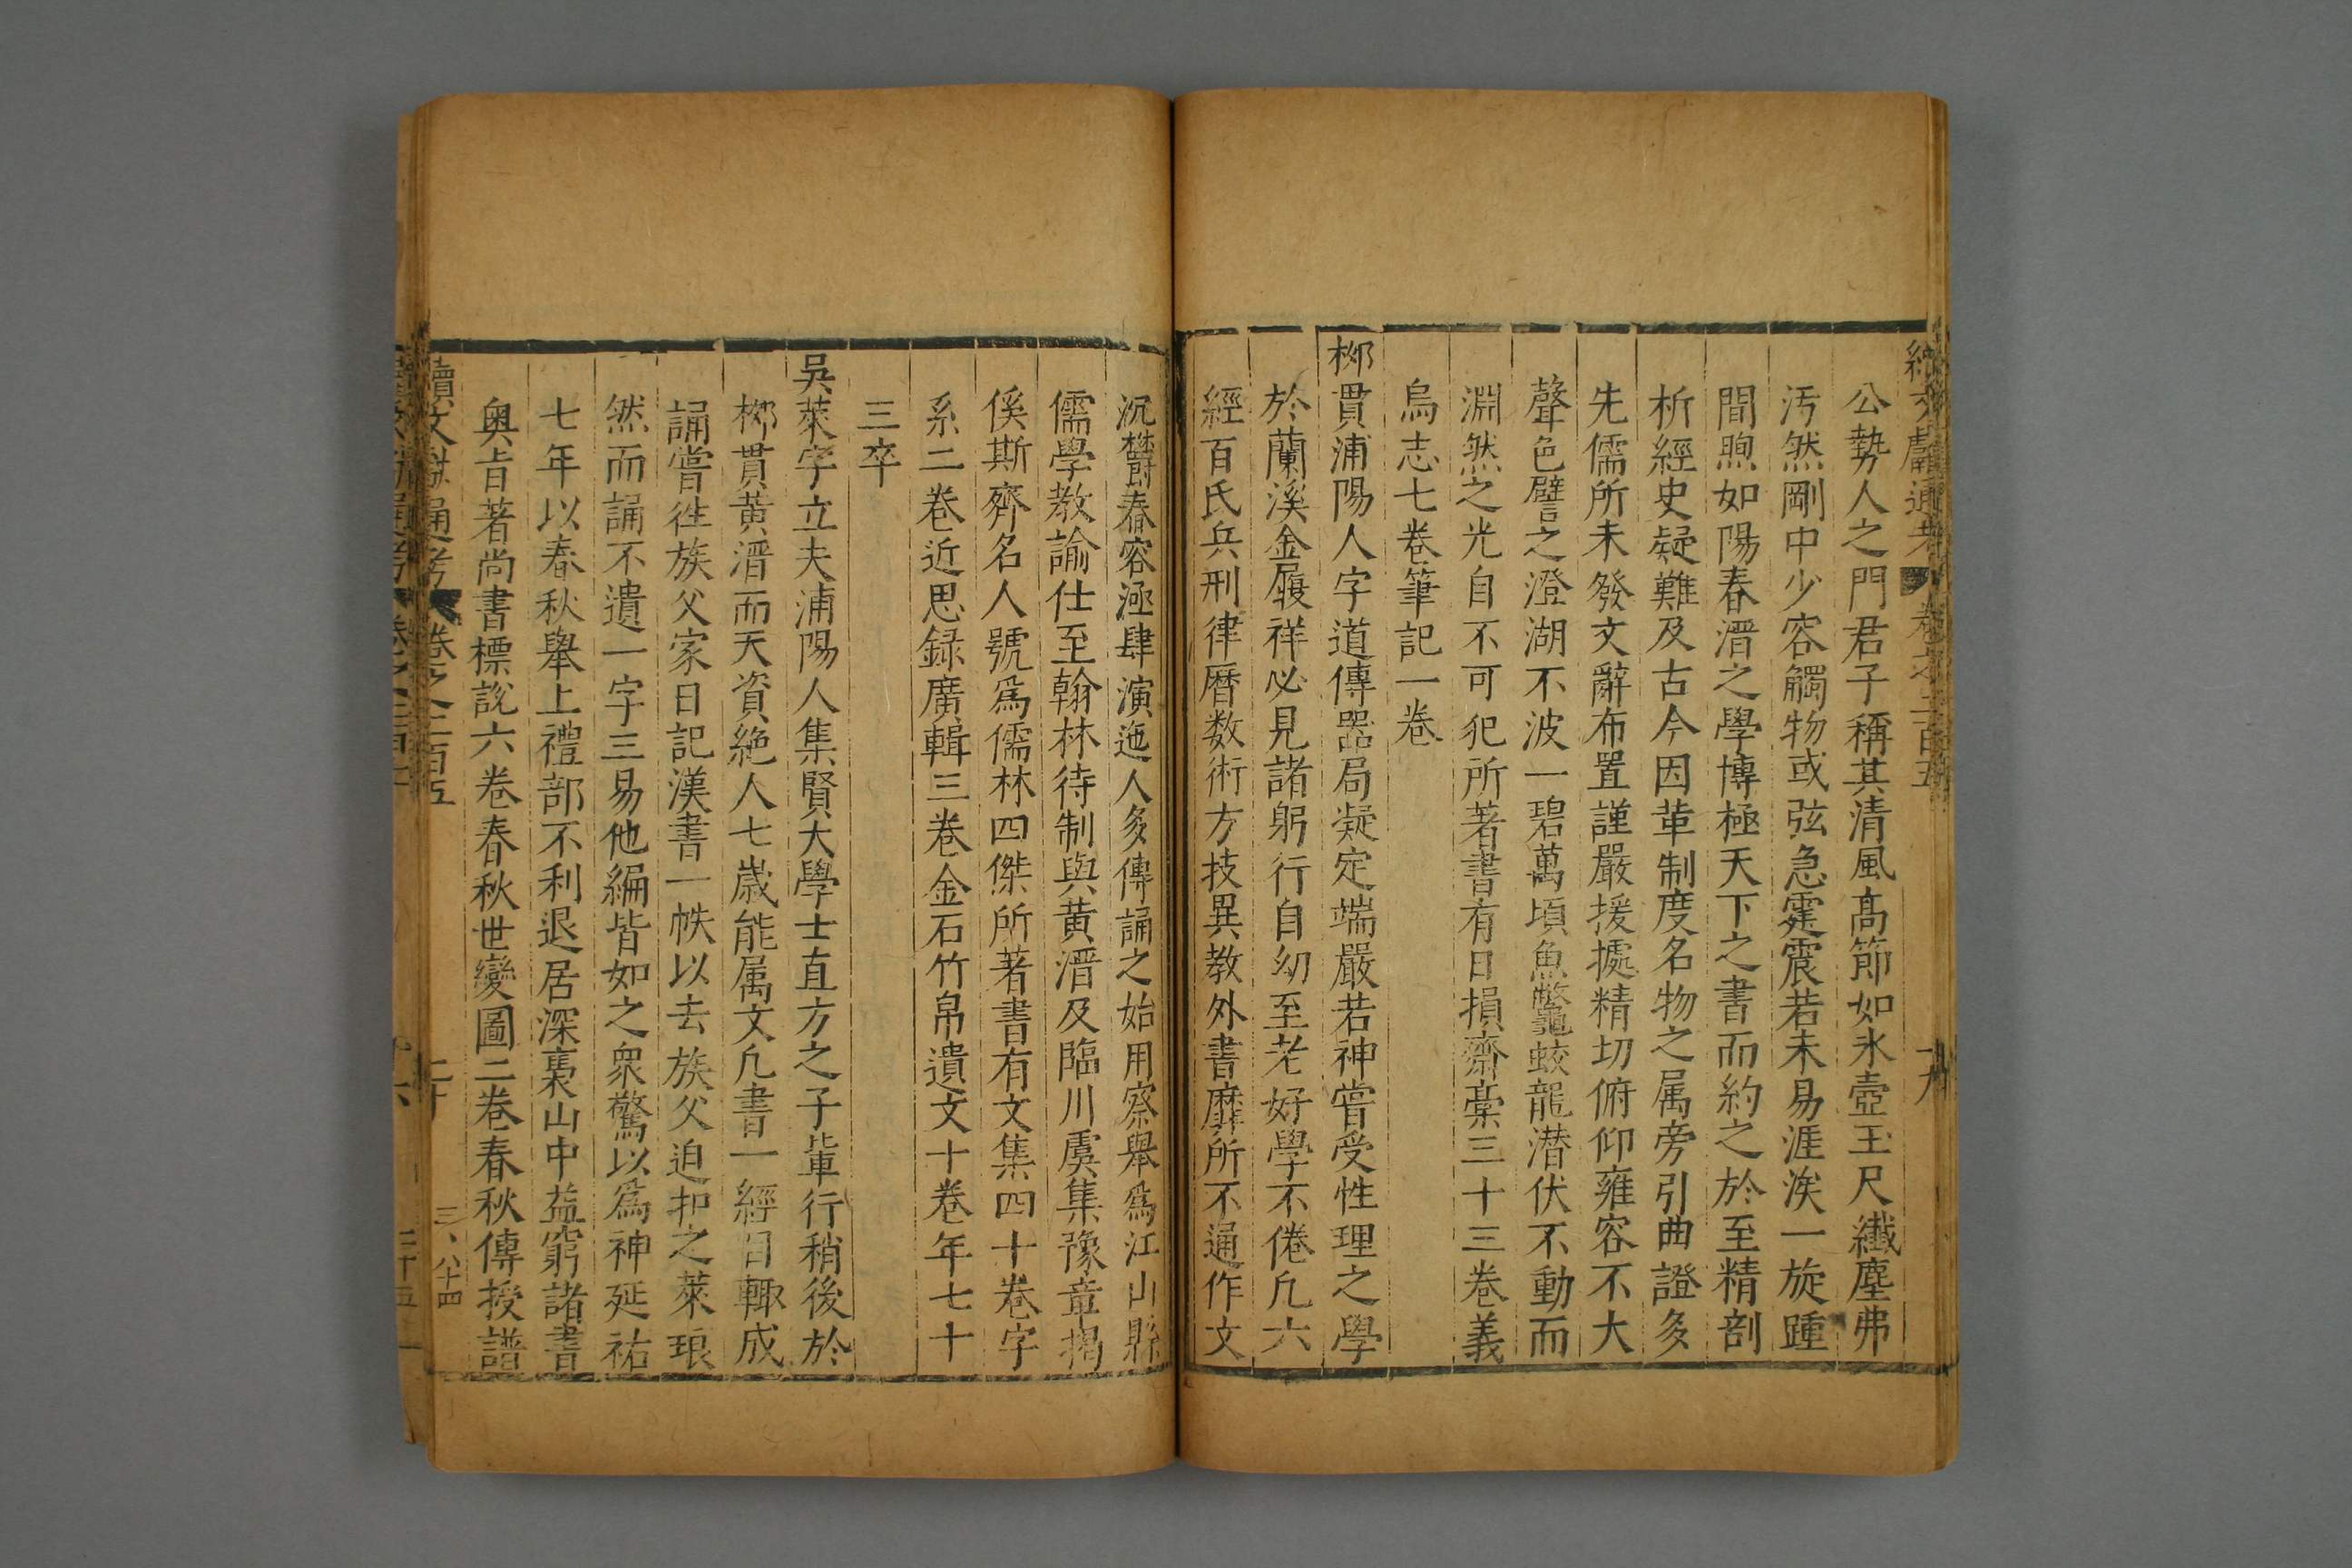 公勢人之門君子稱其清風髙節如氷壺玉尺纎塵弗
汚然剛中少容觸物或弦急霆震若未易涯涘一旋踵
間煦如陽春溍之學博極天下之書而約之於至精剖
析經史疑難及古今因革制度名物之属旁引曲證多
先儒所未發文辭布置謹嚴援據精切俯仰雍容不大
聲色譬之澄湖不波一碧萬頃魚鼈蛟龍潜伏不動而
淵然之光自不可犯所著書有日損齋藁三十三巻義
烏志七巻筆記一巻
桞貫浦陽人字道傳器局凝定端嚴若神嘗受性理之學
於蘭溪金履祥必見諸躬行自幼至老好學不倦凡六
經百氏兵刑律暦数術方技異教外書靡所不通作文
沉欝春容涵肆演迤人多傳誦之始用察舉為江山縣
儒學教諭仕至翰林待制與黄溍及臨川虞集豫章揭
傒斯齊名人號為儒林四傑所著書有文集四十巻字
系二巻近思録廣輯三巻金石竹帛遺文十巻年七十
三卒
吳萊字立夫浦陽人集賢大學士直方之子軰行稍後於
桞貫黄溍而天資絶人七歳能属文凡書一經目輙成
誦嘗徃族父家日記漢書一帙以去族父迫扣之萊琅
然而誦不遺一字三易他編皆如之衆驚以為神延祐
七年以春秋舉上禮部不利退居深褭山中益窮諸書
奥㫖著尚書標説六巻春秋世變圖二巻春秋傳授譜
續文獻通考
巻之二百五
二十
三、八十四